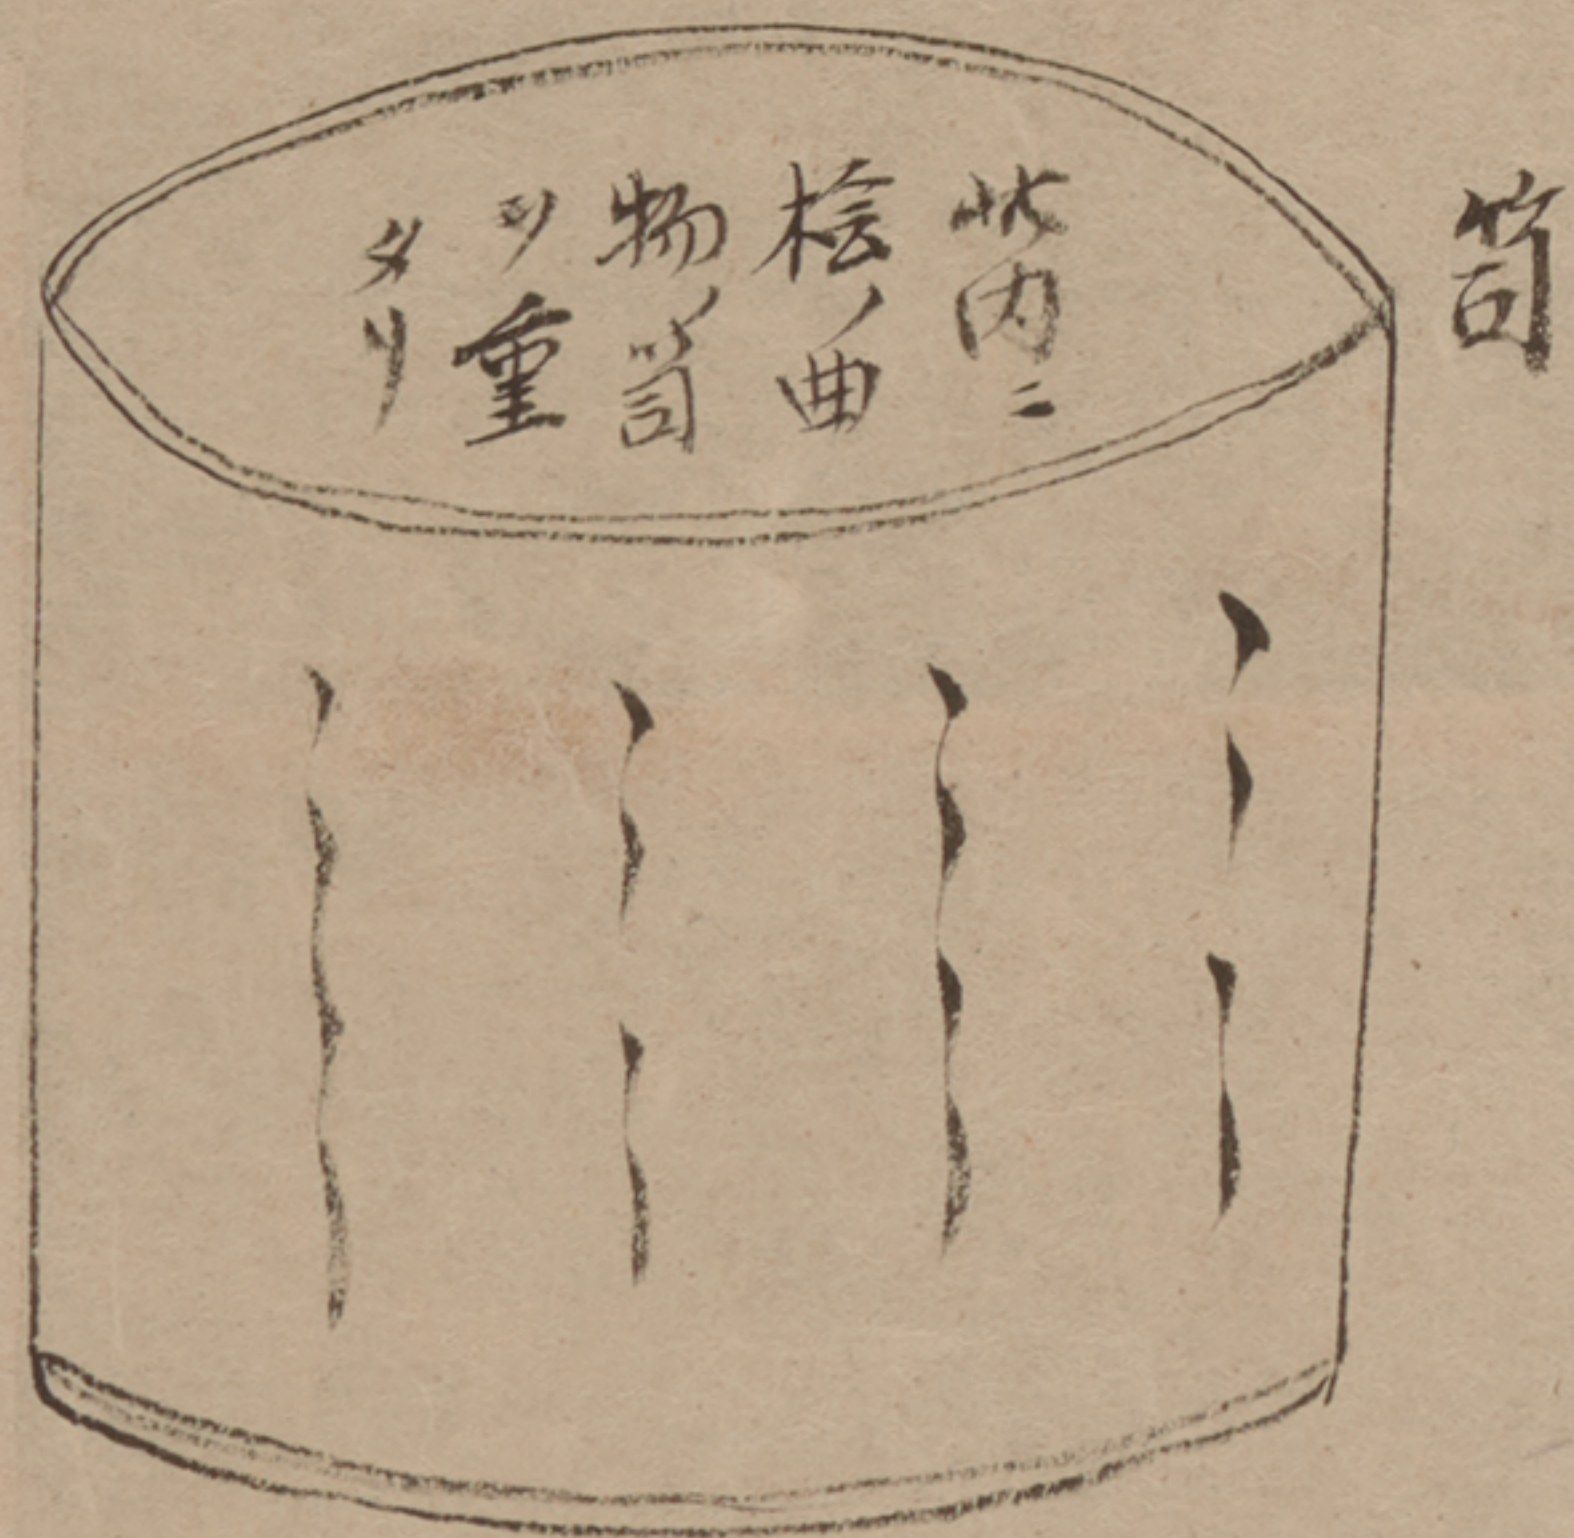 筒
此内ニ
桧ノ曲
物ノ筒
ヲ重
タリ